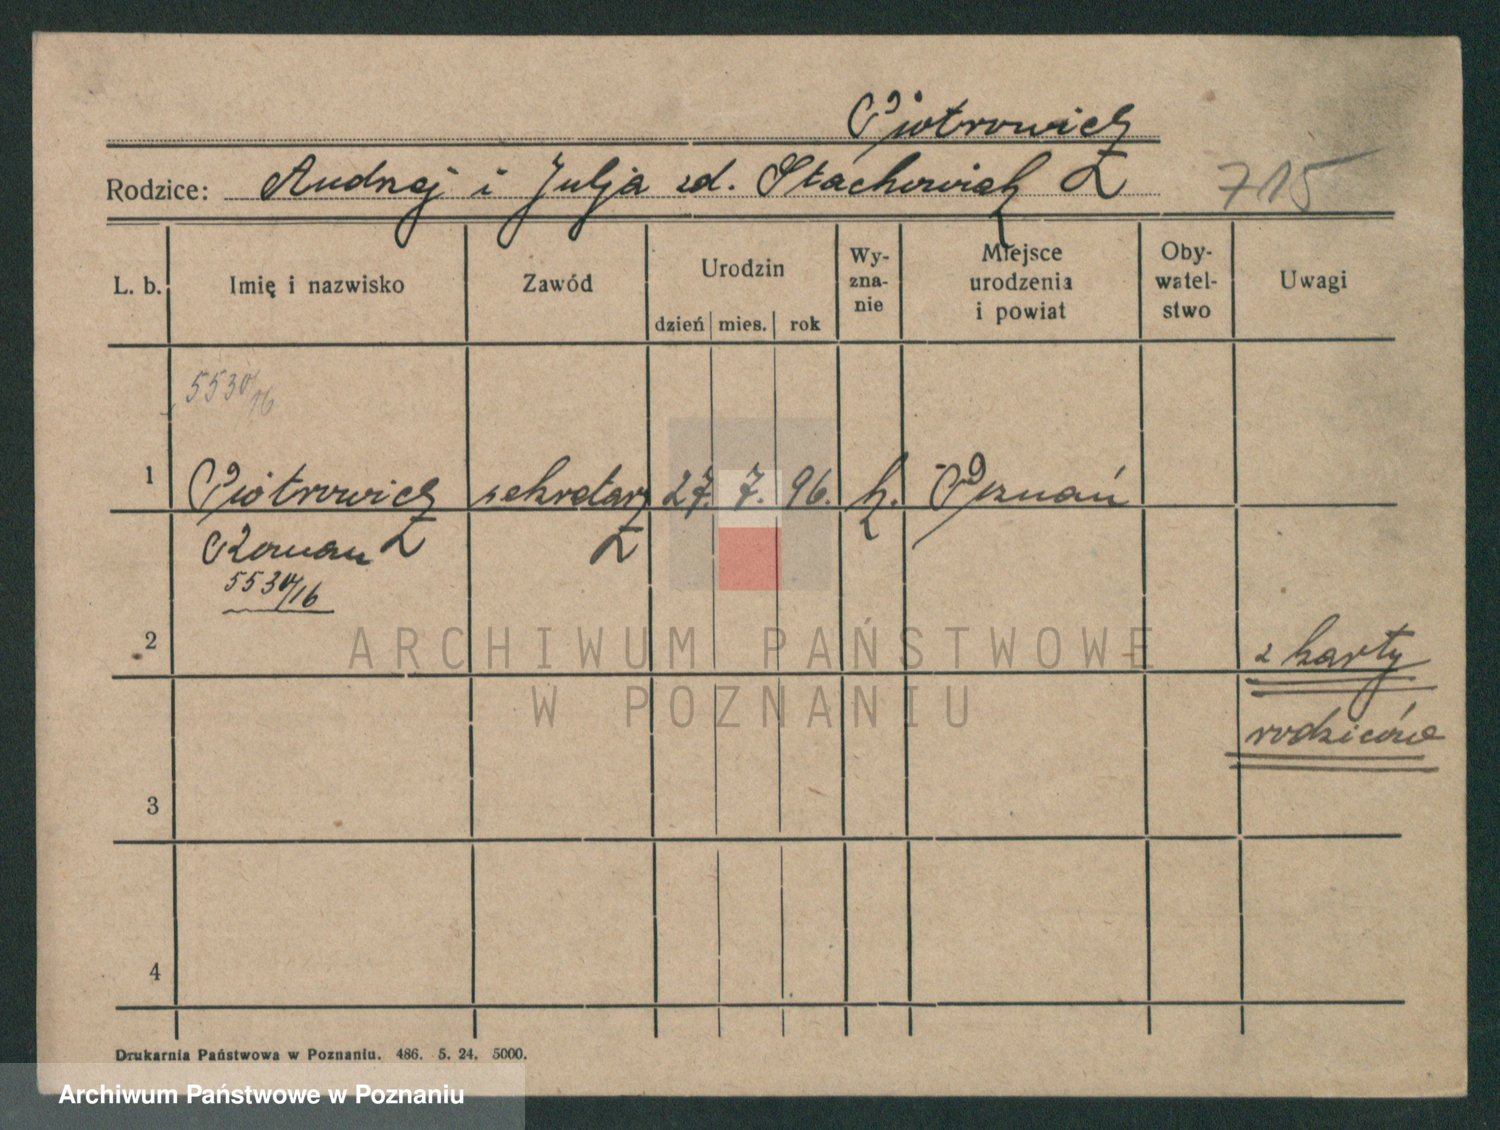 Piotrowicz
Rodzice: Andrzej i Julja zd. Stachowicz 715
L. b. Imię i nazwisko Zawód Urodzin dzień mies. rok Wy-zna-nie Miejsce urodzenia i powiat Oby-watel-stwo Uwagi
5530/16
1 Piotrowicz sekretarz 27. 7. 96. k. Poznań
Roman
5530/16
2 z karty
rodziców
3
4
Drukarnia Państwowa w Poznaniu. 486. 5. 24. 5000.
ARCHIWUM PAŃSTWOWE
W POZNANIU
Archiwum Państwowe w Poznaniu